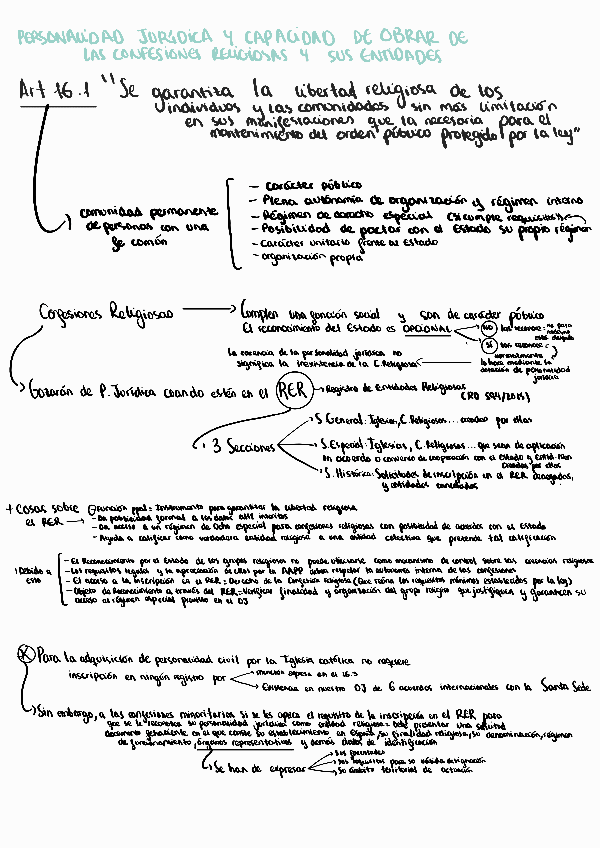 PERSONALIDAD JURÍDICA Y CAPACIDAD DE OBRAR DE
LAS CONFESIONES RELIGIOSAS Y SUS ENTIDADES
Art 16.1 "Se garantiza la libertad religiosa de los
individuos y las comunidades sin más limitación
en sus manifestaciones que la necesaria para el
mantenimiento del orden público protegido por la ley"
comunidad permanente
de personas con una
fe común
- Carácter público
- Plena autonomía de organización y régimen interno
- Régimen de derecho especial (si cumple requisitos)
- Posibilidad de pactar con el Estado su propio régimen
- Carácter unitario frente Estado
- organización propia
Confesiones Religiosas
Cumplen una función social y son de carácter público
El reconocimiento del Estado es OPCIONAL
NO las reconoce: no pasa
SI las reconoce:
normalmente
lo hace mediante la
dotación de personalidad
jurídica
la carencia de la personalidad jurídica no
significa la inexistencia de la C. Religiosa
Gozarán de P. Jurídica cuando estén en el RER
Registro de Entidades Religiosas
(RD 594/2015)
3 Secciones
S. General: Iglesias, C. Religiosas... creadas por ellas
S. Especial: Iglesias, C. Religiosas... que sean de aplicación
un acuerdo o convenio de cooperación con el Estado y Entid. Rel.
creadas por ellas
S. Histórica: Solicitudes de inscripción en el RER denegadas,
y entidades canceladas
+ Cosas sobre
el RER
Función ppal = Instrumento para garantizar la libertad religiosa
- Da publicidad formal a los datos allí inscritos
- Da acceso a un régimen de dcho especial para confesiones religiosas con posibilidad de acuerdos con el estado
- Ayuda a calificar como verdadera entidad religiosa a una entidad colectiva que pretende tal calificación
Debido a
esto
- El Reconocimiento por el Estado de los grupos religiosos no puede utilizarse como mecanismo de control sobre las creencias religiosas
- Los requisitos legales y la apreciación de ellos por la AAPP deben respetar la autonomía interna de las confesiones
- El acceso a la inscripción en el RER = Derecho de la Confesión religiosa (Que reúna los requisitos mínimos establecidos por la ley)
- Objeto de Reconocimiento a través del RER = Verificar finalidad y organización del grupo religioso que justifique y garanticen su
acceso al régimen especial previsto en el OJ
Para la adquisición de personalidad civil por la Iglesia católica no requiere
inscripción en ningún registro por
mención expresa en el 16.3
Existencia en nuestro OJ de 6 acuerdos internacionales con la Santa Sede
Sin embargo, a las confesiones minoritarias si se les aplica el requisito de la inscripción en el RER para
que se le reconozca su personalidad jurídica como entidad religiosa = Debe presentar una solicitud
documento fehaciente en el que conste su establecimiento en España, su finalidad religiosa, su denominación, régimen
de funcionamiento, órganos representativos y demás datos de identificación
Se han de expresar
Sus facultades
Sus requisitos para su válida designación
Su ámbito territorial de actuación